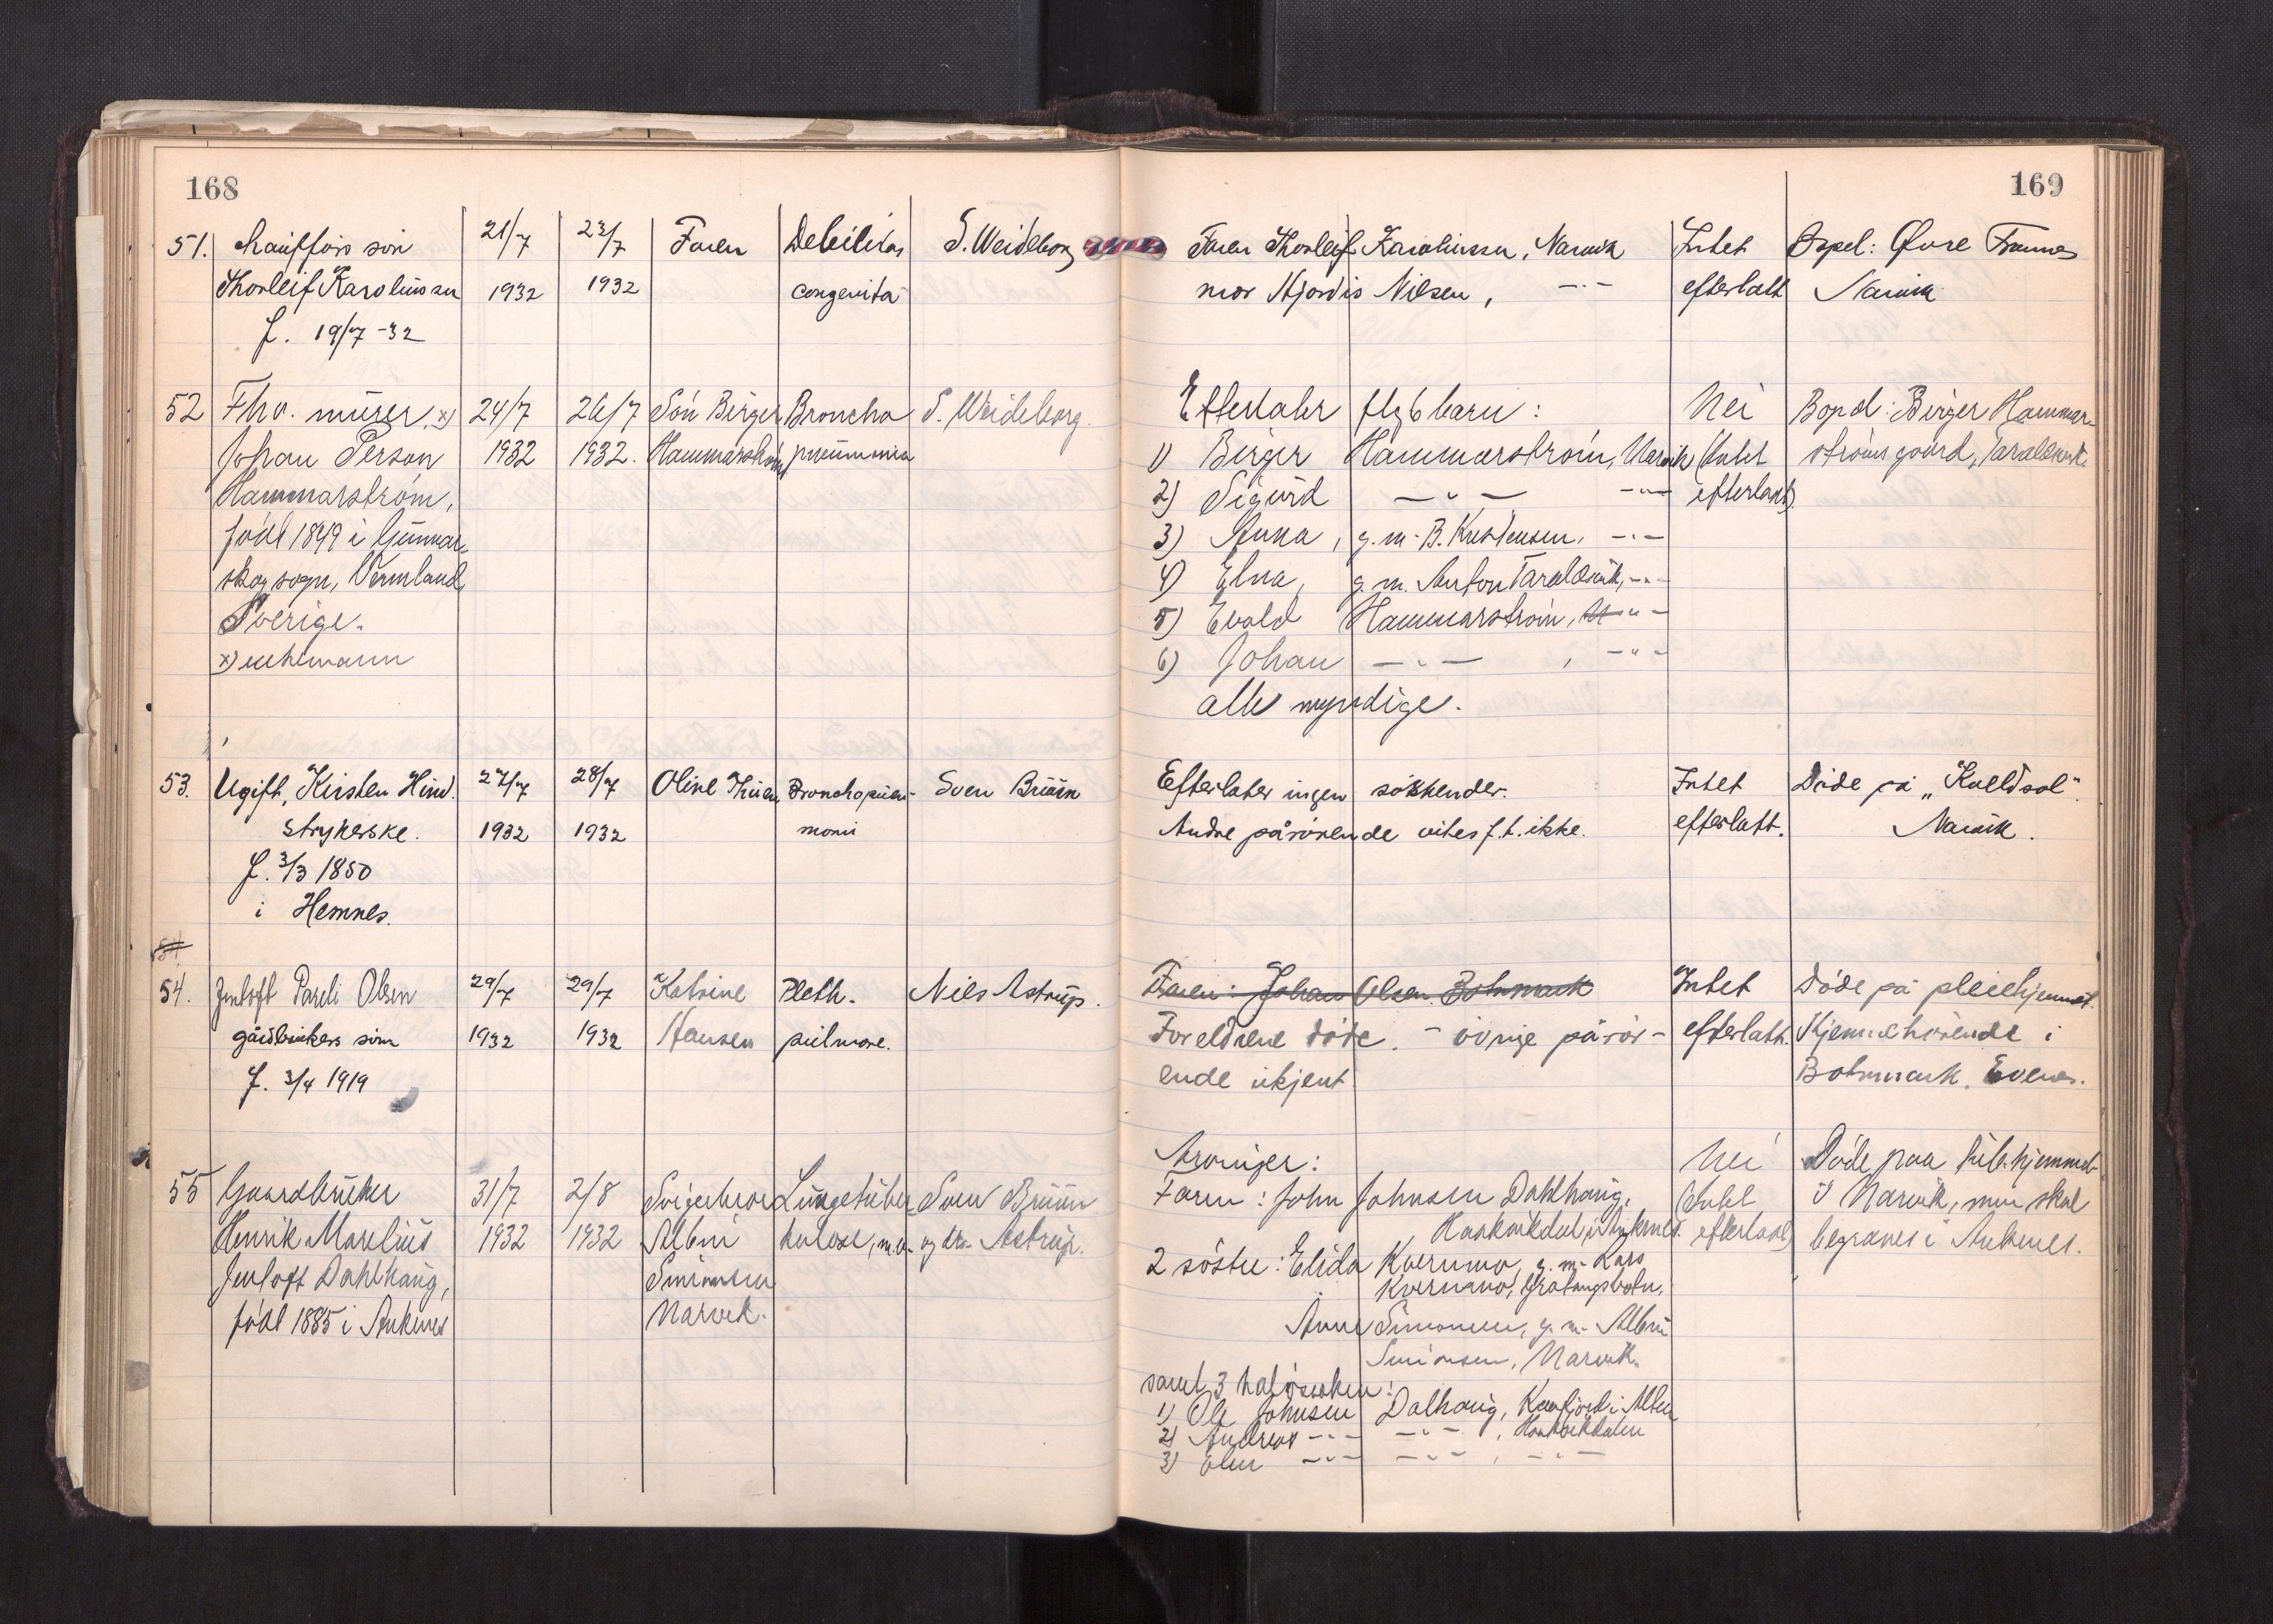 168
51. chaufførs søn 21/7 23/7 Faren Debilitas S. Weideborg
Thorleif Karoliussen 1932 1932 congenita
f. 19/7-32
52 Fhv. murer, x) 24/7 26/7 Søn Birger Broncho S. Weideborg
Johan Person 1932 1932. Hammarström pneumonia
Hammarström,
född 1849 i Gunnar-
skog sogn, Vermland
Sverige.
x) enkemann
53. Ugift, Kirsten Hind. 27/7 28/7 Oline Thuen Bronchopneu- Sven Bruun
strykerske. 1932 1932 moni
f. 3/3 1850
i Hemnes.
54
54. Jentoft Pareli Olsen 29/7 29/7 Katrine Phth. Nils Astrup.
gårdbrukers søn 1932 1932 Hansen pulmon.
f. 3/4 1919
55 Gaardbruker 31/7 2/8 Svigerbror Lungetuber Sven Bruun
Henrik Marelius 1932 1932 Albin kulose, m.v. og dr. Astrup.
Jentoft Dahlhaug, Simonsen
född 1885 i Ankenes Narvik.
169
Faren Thorleif Karoliussen, Narvik Intet Bopel: Øvre Framnes
mor Hjørdis Nilsen, -"- efterlatt Narvik
Efterlater flg 6 barn: Nei Bopel: Birger Hammar-
1) Birger Hammarström, Narvik (Intet ströms gaard, Taraldsvik
2) Sigurd -"- -"- efterlatt)
3) Anna, g.m. B. Kristensen, -"-
4) Elna, g.m. Anton Taraldsvik, -"-
5) Evald Hammarström, -"-
6) Johan -"-, -"-
alle myndige.
Efterlater ingen søskender. Intet Døde på „Kveldsol".
Andre pårørende vites f.t. ikke. efterlatt. Narvik.
Faren: Johan Olsen Botnmark Intet Døde på pleiehjemmet.
Foreldrene døde. - øvrige pårør- efterlatt. Hjemmehørende i
ende ukjent Botnmark, Evenes.
Arvinger: Nei Døde paa tub.hjemmet
Faren: John Johnsen Dahlhaug, (Intet i Narvik, men skal
Haakvikdal, i Ankenes. efterlatt) begraves i Ankenes.
2 søstre: Elida Kvernmo, g.m. Lars
Kvernmo, Gratangsbotn,
Anne Simonsen, g.m. Albin
Simonsen, Narvik.
samt 3 halvsøsken:
1) Ole Johnsen Dalhaug, Kaafjord i Alten
2) Andreas -"- -"-, Haakvikdalen
3) -"- -"-, -"-